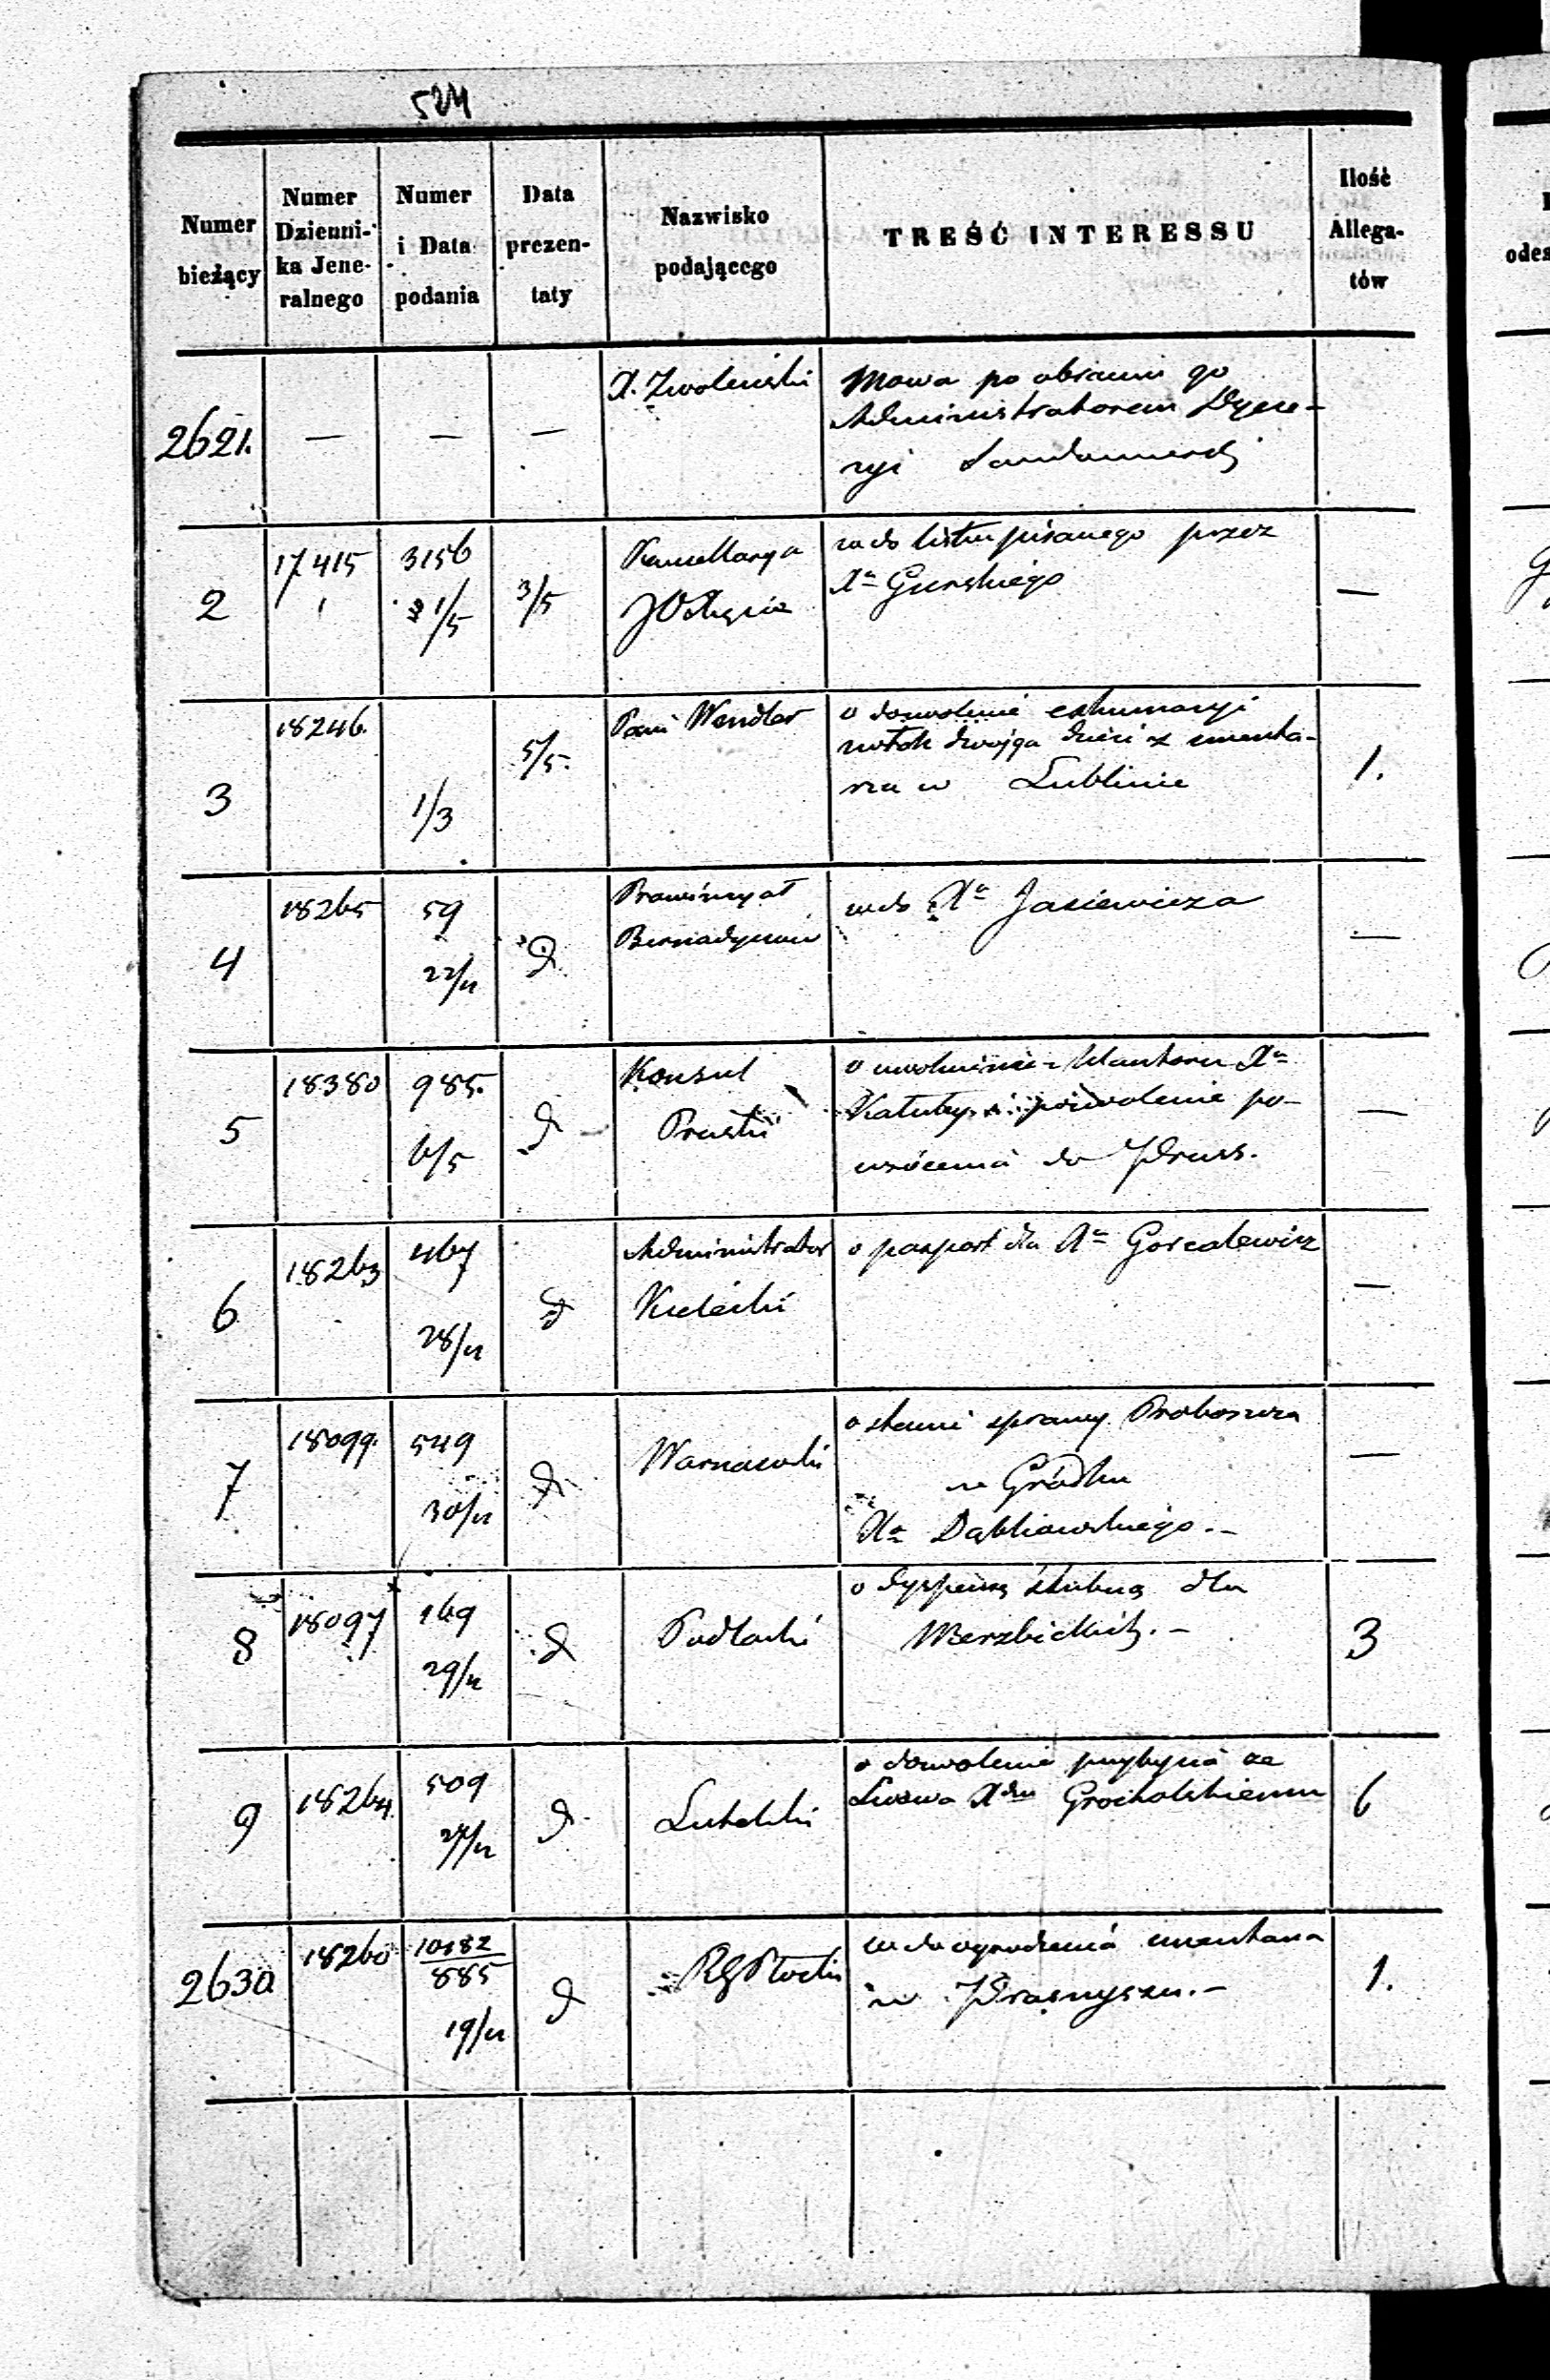 524
Numer bieżący
Numer Dzienni- ka Jene- ralnego
Numer i Data podania
Data prezen- taty
Nazwisko podającego
TREŚĆ INTERESSU
Ilość Allega- tów
2621. — — — X. Zwoleński Mowa po obraniu go
Administratorem Dyece-
zyi Sandomierskiej
2 17415 3156 1/5 3/5 Kancellarya wdo listu pisanego przez —
JO Księcia Xa Gurskiego
3 18246. 1/3 5/5. Pani Wendler o dozwolenie exhumacyi 1.
zwłok dwojga dzieci z cmenta-
rza w Lublinie
4 18265 59 22/4 d Prowincyał wdo Xa Jasiewicza —
Bernadynów
5 18380 985. 6/5 d Konsul o uwolnienie z Klasztoru Xa
Pruski pozwolenie po- —
wrócenia do Pruss.
6 18263 467 28/4 d Administrator o paszport dla Xa Gorcalewicz —
Kielecki
7 18099. 549 30/4 d Warszawski o stanie sprawy Proboszcza —
w Gródku
Xa Dąbkowskiego.-
8 18097 169 29/4 d Podlaski o dyspensę ślubną dla 3
Wierzbickich.-
9 18264. 509 27/4 d Lubelski o dozwolenie przybycia ze 6
Lwowa Xdzu Grocholskiemu
2630 18260 10182/885 19/4 d RG Płocki wdo ogrodzenia cmentarza 1.
w Prasnyszu.-